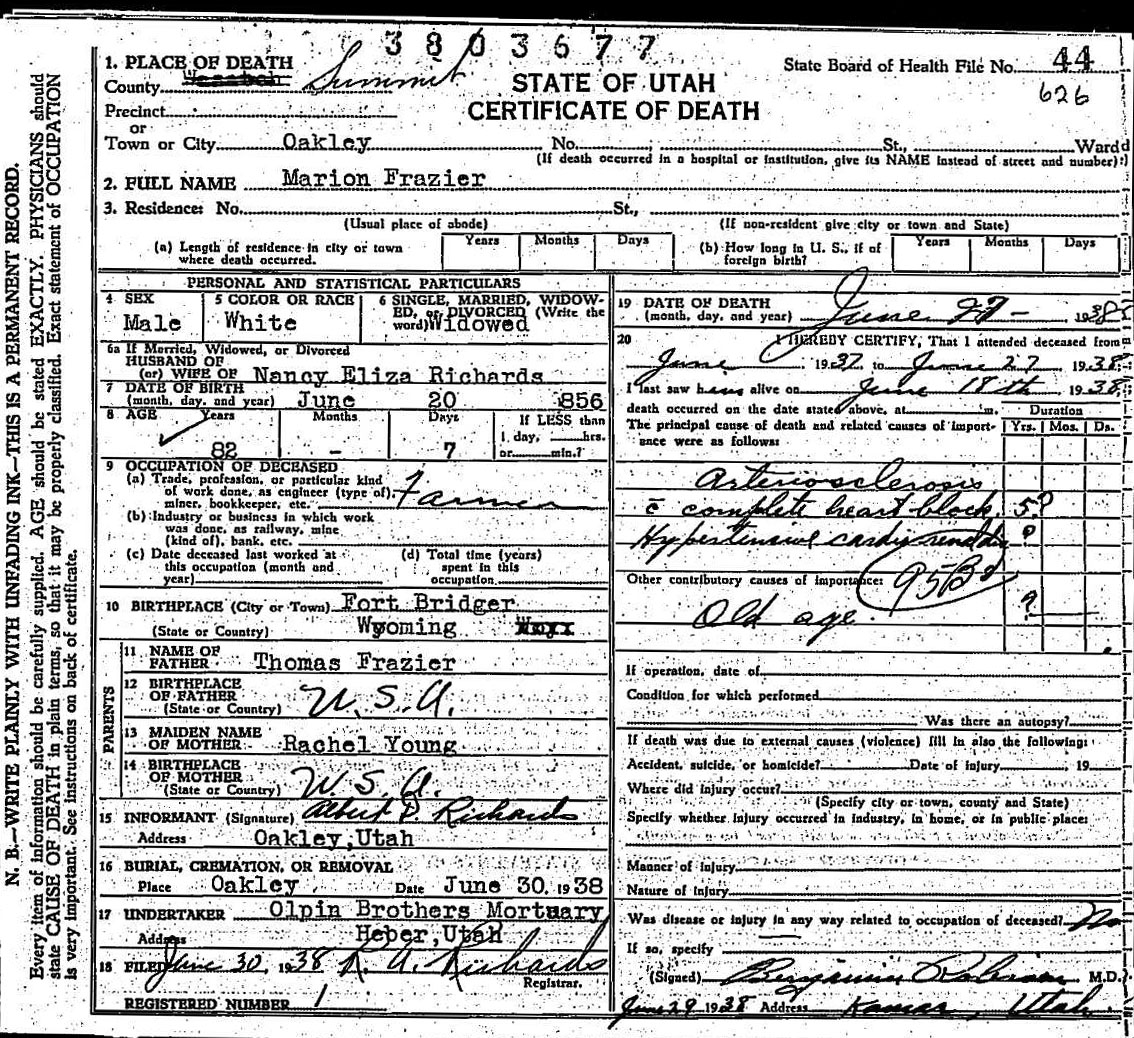 3803677
1. PLACE OF DEATH
County Wasatch Summit
STATE OF UTAH
CERTIFICATE OF DEATH
State Board of Health File No. 44
626
Precinct
or
Town or City Oakley No. St., Ward
(If death occurred in a hospital or institution, give its NAME instead of street and number)
2. FULL NAME Marion Frazier
3. Residence: No. St.,
(Usual place of abode) (If non-resident give city or town and State)
(a) Length of residence in city or town where death occurred. Years Months Days
(b) How long in U. S., if of foreign birth? Years Months Days
PERSONAL AND STATISTICAL PARTICULARS
4 SEX
Male
5 COLOR OR RACE
White
6 SINGLE, MARRIED, WIDOW-
ED, or DIVORCED (Write the
word) Widowed
6a If Married, Widowed, or Divorced
HUSBAND OF
(or) WIFE OF Nancy Eliza Richards
7 DATE OF BIRTH
(month, day, and year) June 20 856
8 AGE Years Months Days If LESS than
1 day, hrs.
82 - 7 or min.?
9 OCCUPATION OF DECEASED
(a) Trade, profession, or particular kind
of work done, as engineer (type of),
miner, bookkeeper, etc. Farmer
(b) Industry or business in which work
was done, as railway, mine
(kind of), bank, etc.
(c) Date deceased last worked at
this occupation (month and
year)
(d) Total time (years)
spent in this
occupation
10 BIRTHPLACE (City or Town) Fort Bridger
(State or Country) Wyoming
PARENTS
11 NAME OF
FATHER Thomas Frazier
12 BIRTHPLACE
OF FATHER
(State or Country) U.S.A.
13 MAIDEN NAME
OF MOTHER Rachel Young
14 BIRTHPLACE
OF MOTHER
(State or Country) U.S.A.
15 INFORMANT (Signature) Albert D. Richards
Address Oakley, Utah
16 BURIAL, CREMATION, OR REMOVAL
Place Oakley Date June 30, 1938
17 UNDERTAKER Olpin Brothers Mortuary
Address Heber, Utah
18 FILED June 30, 1938 R. A. Richards
Registrar.
REGISTERED NUMBER 1
19 DATE OF DEATH
(month, day, and year) June 27- 1938
20 I HEREBY CERTIFY, That I attended deceased from
June 1937 to June 27 1938
I last saw him alive on June 18th 1938,
death occurred on the date stated above, at m.
The principal cause of death and related causes of import-
ance were as follows:
Duration
Yrs. Mos. Ds.
Arteriosclerosis
c̄ complete heart block. 5?
Hypertensive cardio renal dis ?
Other contributory causes of importance:
95B2
Old age. ?
If operation, date of
Condition for which performed
Was there an autopsy?
If death was due to external causes (violence) fill in also the following:
Accident, suicide, or homicide? Date of injury, 19
Where did injury occur?
(Specify city or town, county and State)
Specify whether injury occurred in industry, in home, or in public place:
Manner of injury
Nature of injury
Was disease or injury in any way related to occupation of deceased? No
If so, specify
(Signed) Benjamin Robison M.D.
June 29 1938 Address Kamas, Utah
N. B.—WRITE PLAINLY WITH UNFADING INK—THIS IS A PERMANENT RECORD.
Every item of information should be carefully supplied. AGE should be stated EXACTLY. PHYSICIANS should
state CAUSE OF DEATH in plain terms, so that it may be properly classified. Exact statement of OCCUPATION
is very important. See instructions on back of certificate.